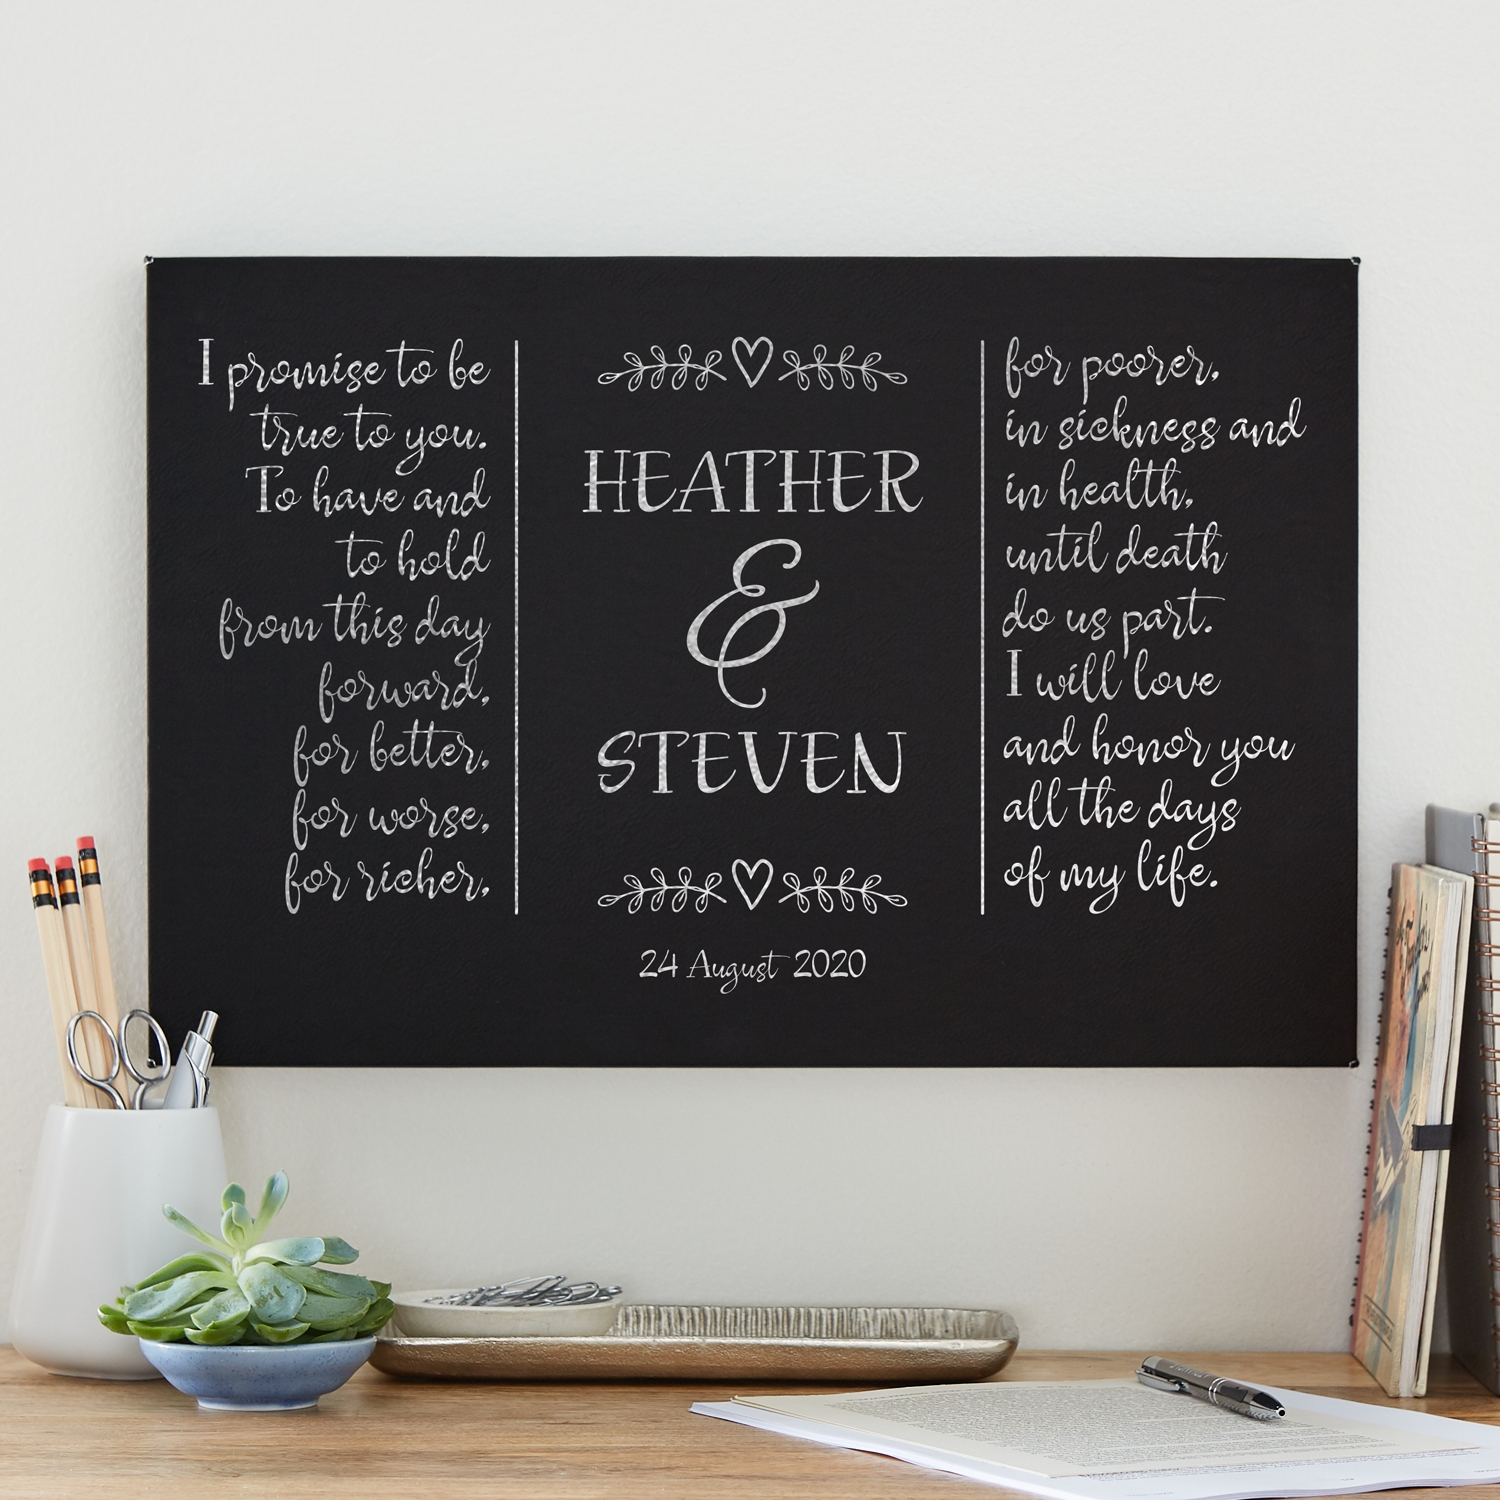 I promise to be
true to you.
To have and
to hold
from this day
forward,
for better,
for worse,
for richer,
HEATHER
&
STEVEN
24 August 2020
for poorer,
in sickness and
in health,
until death
do us part.
I will love
and honor you
all the days
of my life.